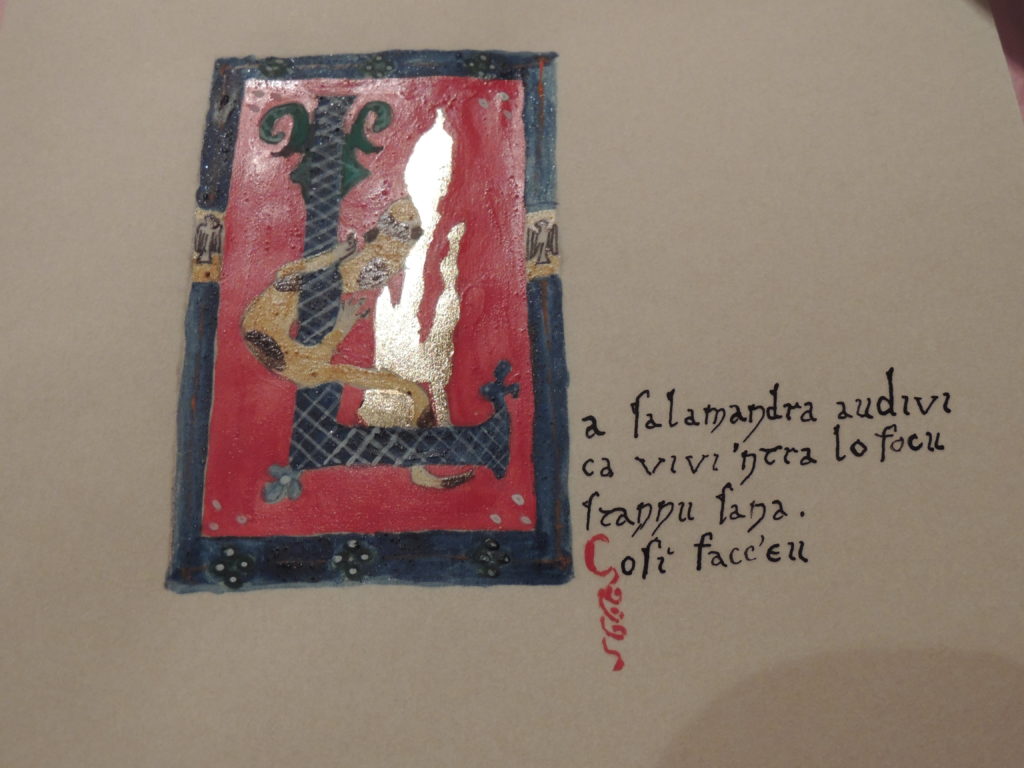 La salamandra audivi
ca vivi 'ntra lo focu
stannu sana.
Così facc'eu